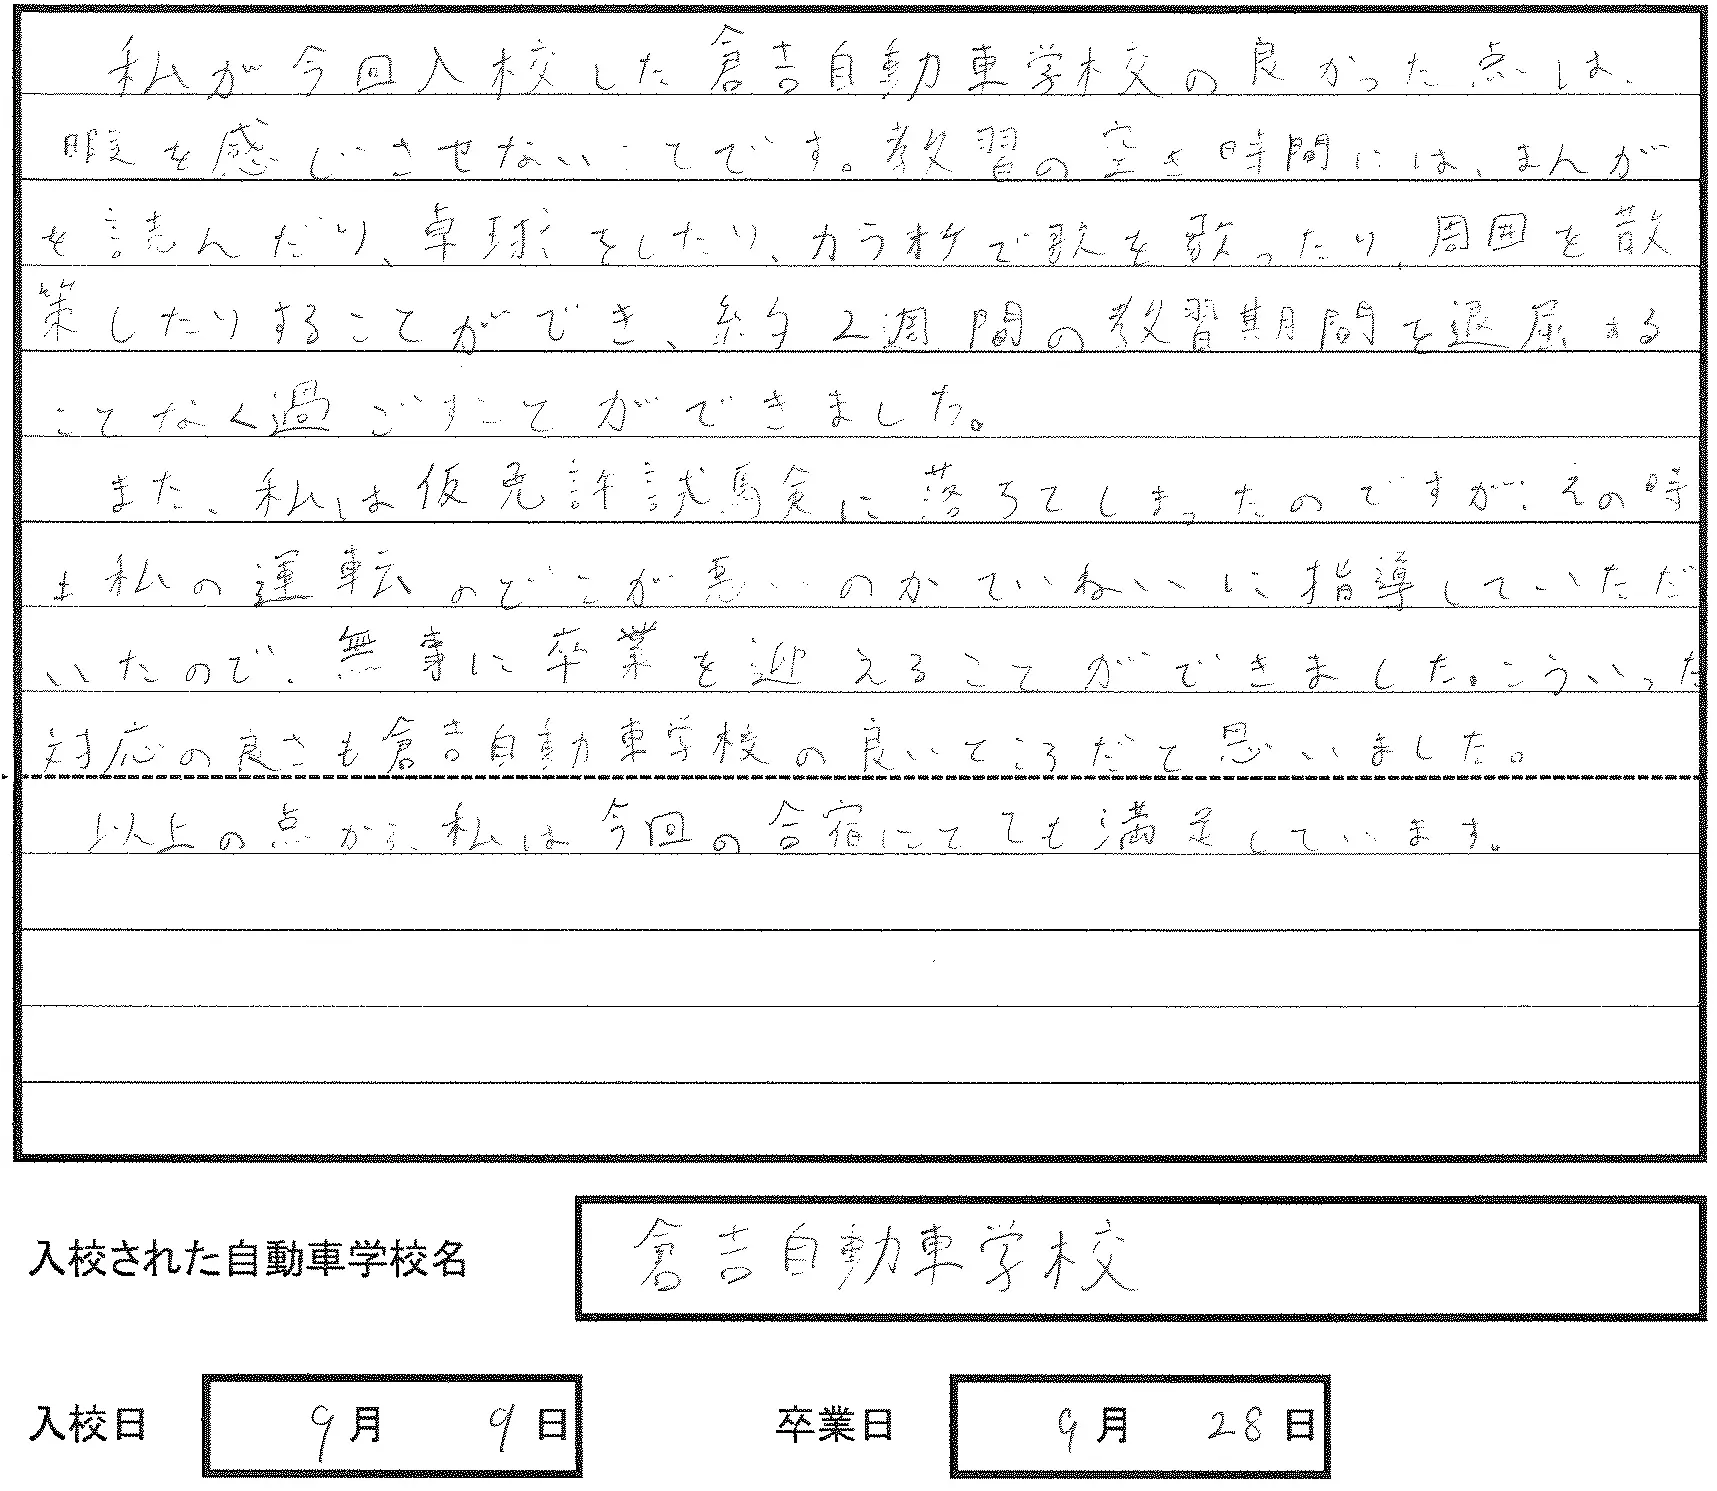 私が今回入校した倉吉自動車学校の良かった点は、
暇を感じさせないことです。教習の空き時間には、まんが
を読んだり、卓球をしたり、カラオケで歌を歌ったり、周囲を散
策したりすることができ、約2週間の教習期間を退屈する
ことなく過ごすことができました。
また、私は仮免許試験に落ちてしまったのですが、その時
も私の運転のどこが悪いのかていねいに指導していただ
いたので、無事に卒業を迎えることができました。こういった
対応の良さも倉吉自動車学校の良いところだと思いました。
以上の点から、私は今回の合宿にとても満足しています。
入校された自動車学校名 倉吉自動車学校
入校日 9月 9日 卒業日 9月 28日